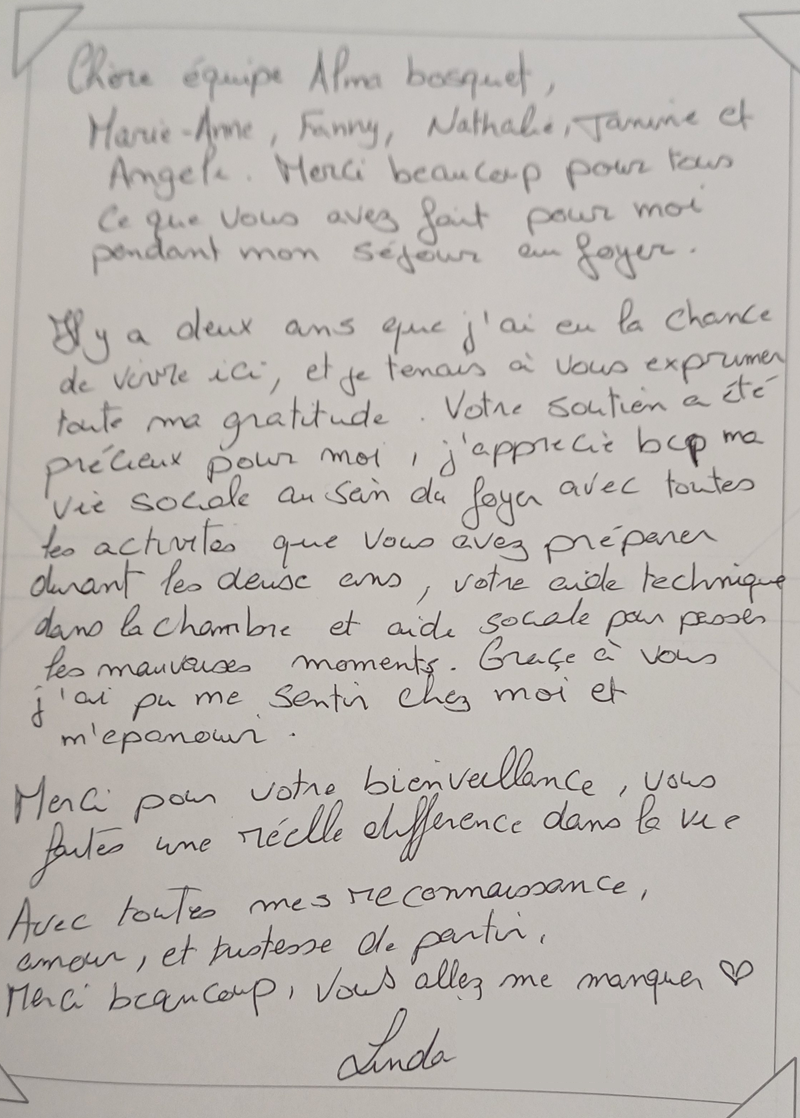 Chère équipe Alma bosquet,
Marie-Anne, Fanny, Nathalie, Janine et
Angele. Merci beaucoup pour tous
ce que vous avez fait pour moi
pendant mon séjour au foyer.
Il y a deux ans que j'ai eu la chance
de vivre ici, et je tenais à vous exprimer
toute ma gratitude. Votre soutien a été
précieux pour moi, j'apprecie bcp ma
vie sociale au sein du foyer avec toutes
les activités que vous avez préparer
durant les deux ans, votre aide technique
dans la chambre et aide sociale pour passer
les mauvaises moments. Graçe à vous
j'ai pu me sentir chez moi et
m'epanouir.
Merci pour votre bienveillance, vous
faites une réelle difference dans la vie
Avec toutes mes reconnaissance,
amour, et tristesse de partir,
Merci beaucoup, vous allez me manquer ♡
Linda